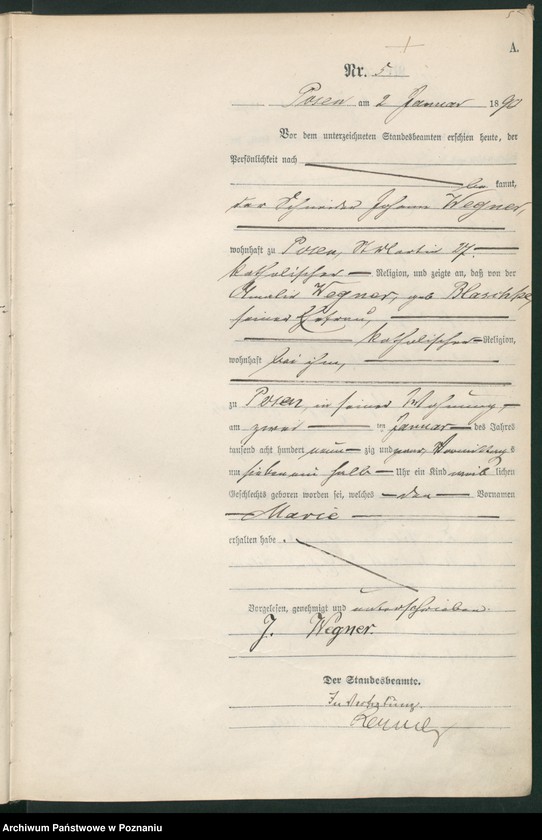 A.
Nr. 5
Posen am 2 Januar 1890
Vor dem unterzeichneten Standesbeamten erschien heute, der
Persönlichkeit nach
kannt,
der Schneider Johann Wegner,
wohnhaft zu Posen, St Martin
katholischer Religion, und zeigte an, daß von der
Amalie Wegner, geb Blaschke,
seiner Ehefrau,
katholischer Religion,
wohnhaft bei ihm,
zu Posen, in seiner Wohnung,
am zwei ten Januar des Jahres
tausend acht hundert neun zig und Vormittags
um sieben ein halb Uhr ein Kind weib lichen
Geschlechts geboren worden sei, welches den Vornamen
Marie
erhalten habe.
Vorgelesen, genehmigt und unterschrieben.
J. Wegner.
Der Standesbeamte.
In Vertretung.
Archiwum Państwowe w Poznaniu